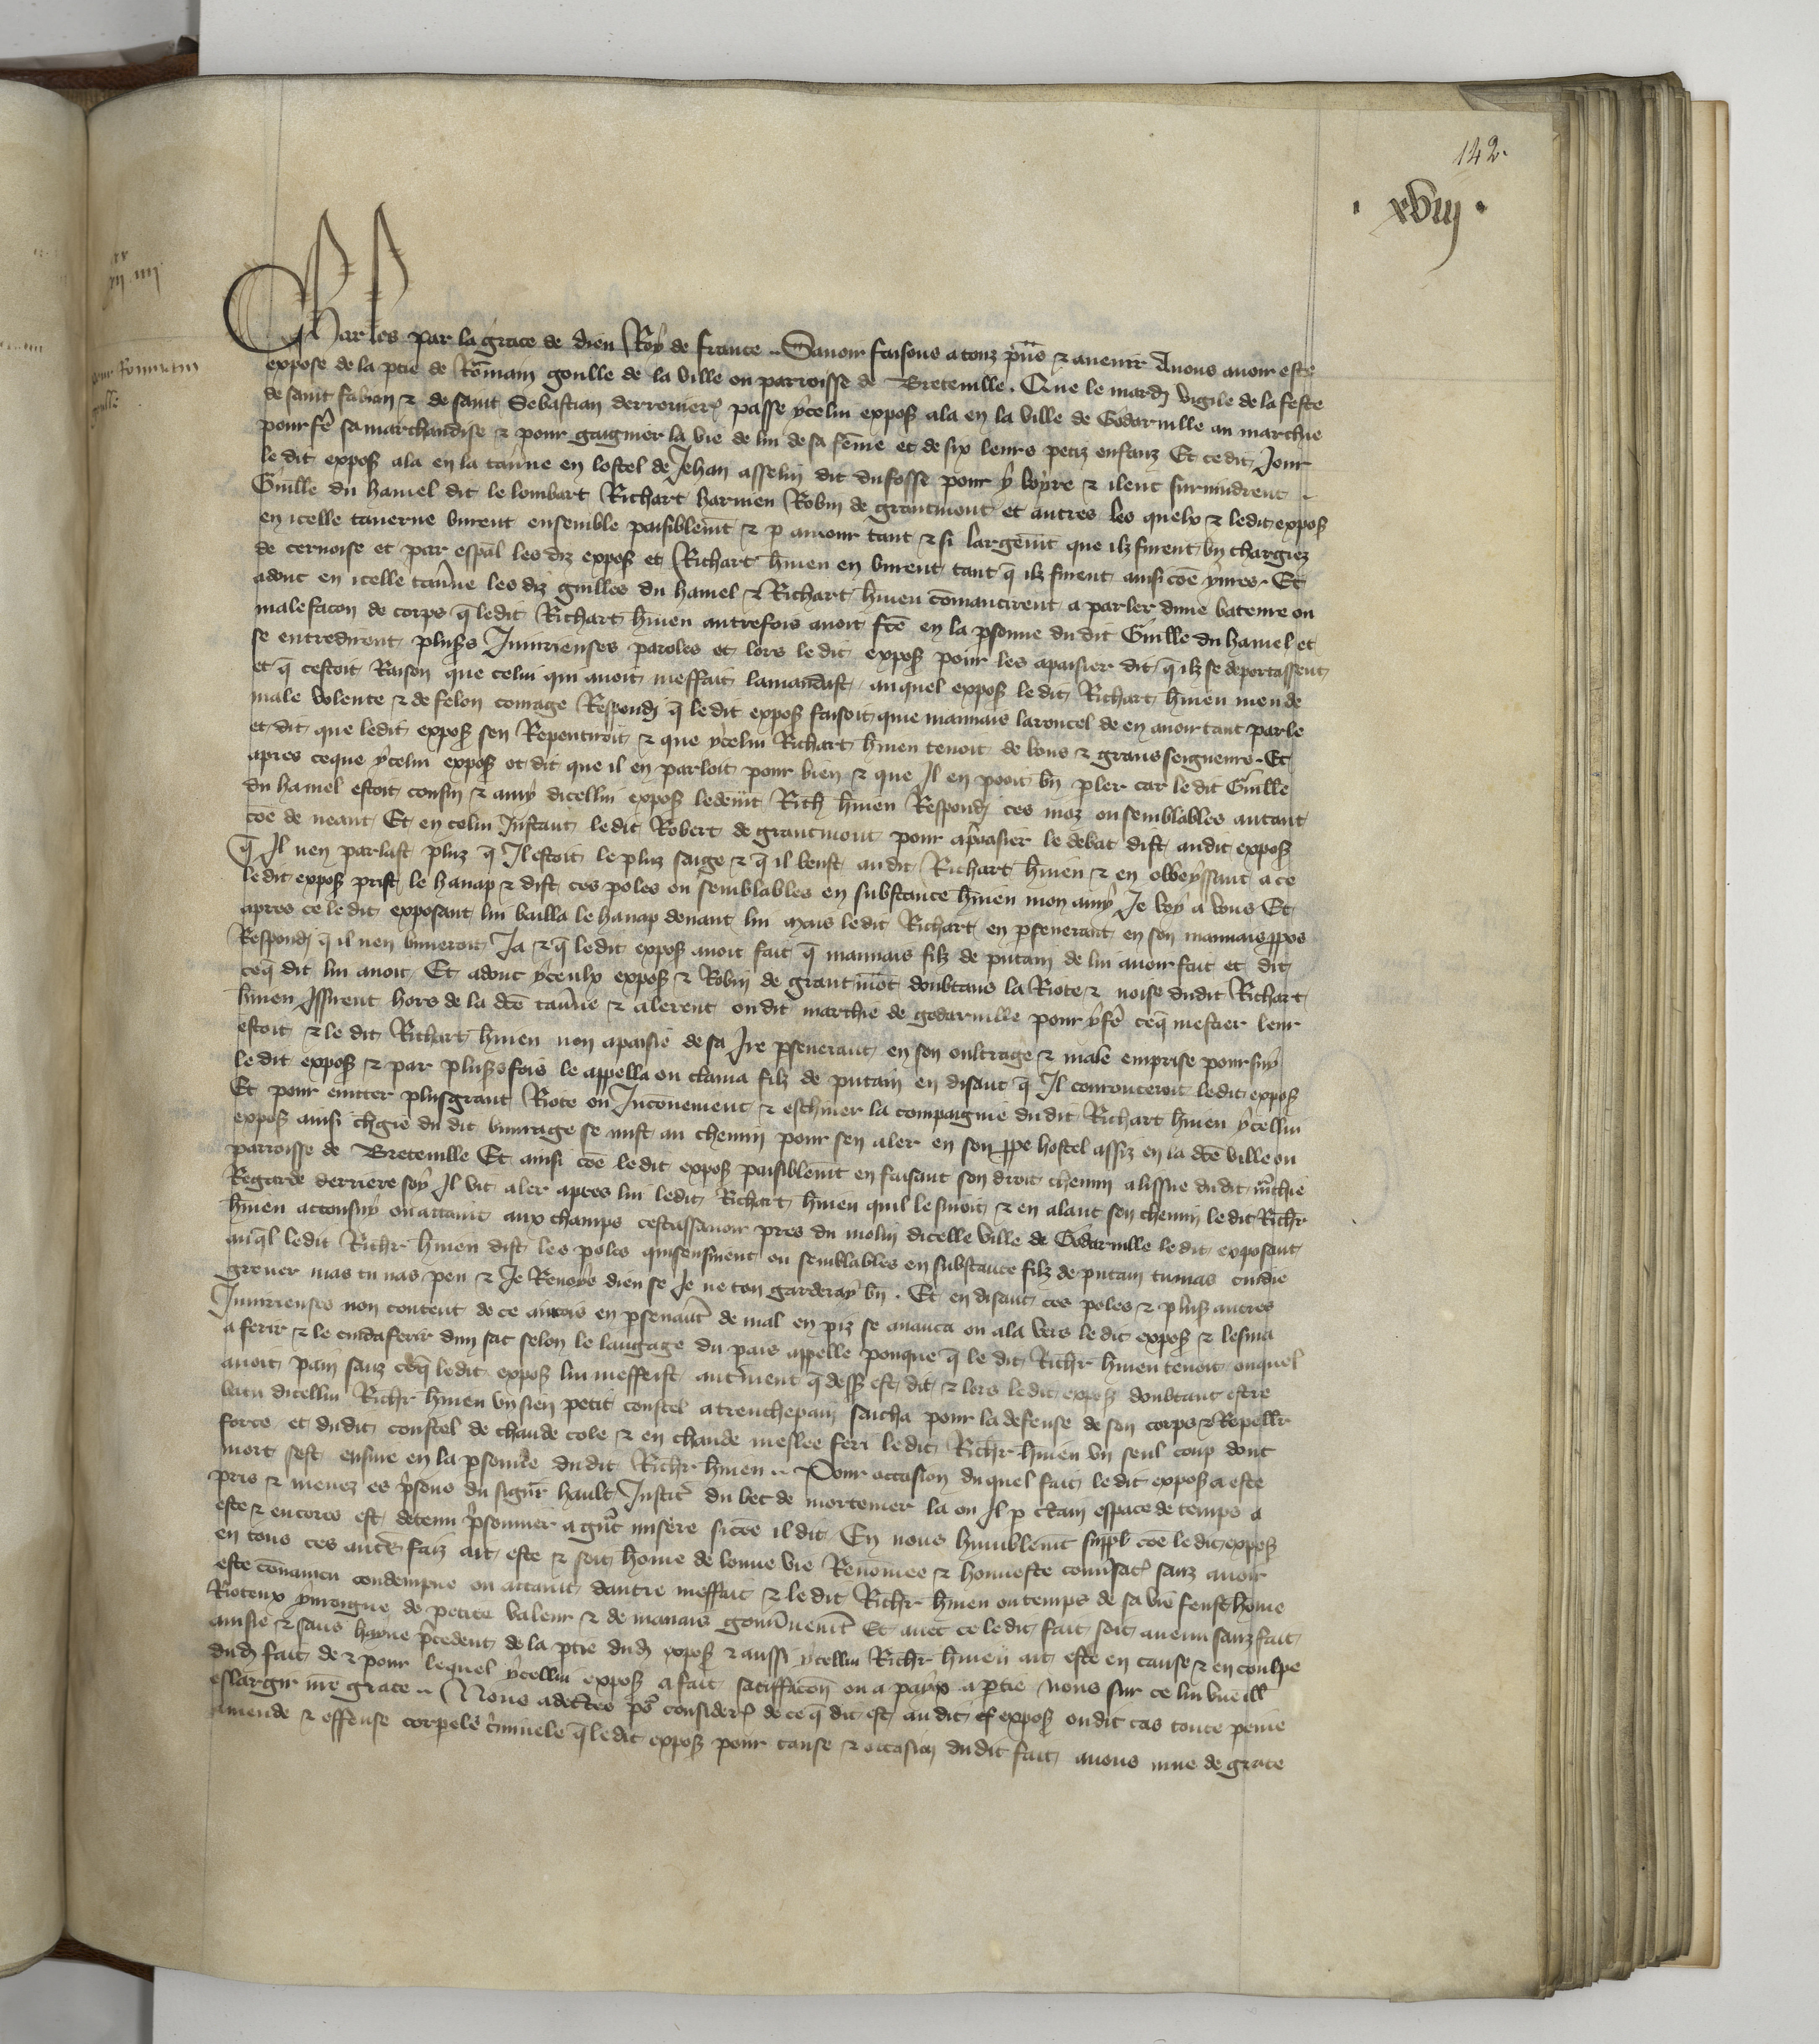 142.
xviii
pour Rommain
goulle
Charles par la grace de dieu Roy de france .. Sauoir faisons a touz pñs & auenir Nous auoir este
expose de la ptie de Rōmain goulle de la ville ou parroisse de Breteuille . Que le mardj vigile de la feste
de saint fabian & de saint Sebastian derrenier passe ycelui expos ala en la ville de Godaruille au marchie
pour fe sa marchandise & pour gaignier la vie de lui de sa fēme et de six leurs petiz enfanz Et ce dit Jour
le dit expos ala en la tauˀne en lostel de Jehan asselin dit du fosse pour y boyre & ilent suruindrent
Guille du hamel dit le lombart Richart harmen Robin de grantmont et autres les quelx & ledit expos
en icelle tauerne burent ensemble paisiblemēt & p amour tant & si largemēt que ilz furent bn chargiez
de ceruoise et par espāl les diz expos et Richart hmen en burent tant q̄ ilz furent ainsi cōe yures . Et
adonc en icelle tauˀne les diz guilles du hamel & Richart hmen cōmancerent a parler dune bateure ou
malefacon de corps q̄ ledit Richart hmen autrefois auoit fcē en la psonne du dit Guille du hamel et
se entredirent plus˜s Iniurieuses paroles et lors le dit expos pour les apaisier dit q̄ ilz se deportassent
et q̄ cestoit Raison que celui qui auoit meffait lamandast auquel expos le dit Richart hmen meu de
male volente & de felon courage Respondj q̄ le dit expos faisoit que mauuais larroncel de en auoir tant parle
et dit que ledit expos sen Repentiroit & que ycelui Richart hmen tenoit de bons & grans seigneurs . Et
apres ce que ycelui expos ot dit que il en parloit pour bien & que Il en pooit bn pler car le dit Guille
du hamel estoit cousin & amy dicellui expos ledeūt Rich hmen Respondj ces moz ou semblables autant
cōe de neant Et en celui Instant le dit Robert de grantmont pour apaisier le debat dist audit expos
q̄ Il nen parlast pluz q̄ Il estoit le pluz saige & q̄ il beust au dit Richart hmen & en obeyssant a ce
le dit expos prist le hanap & dist ces poles ou semblables en substance hmen mon amy Je boy a vous Et
apres ce le dit exposant lui bailla le hanap deuant lui mais ledit Richart en pseuerant en son mauuais ppos
Respondj q̄ il nen buueroit Ja & q̄ le dit expos auoit fait q̄ mauuais filz de putain de lui auoir fait et dit
ce q̄ dit lui auoit Et adonc yceulx expos & Robin de grantmōt doubtans la Riote & noise dudit Richart
hmen Issirent hors de la dcē tauˀne & alerent ou dit marchie de godaruille pour y fe ce q̄ mestier leur
estoit & le dit Richart hmen non apaisie de sa Ire pseuerant en son oultrage & male emprise poursuy
le dit expos & par plus˜s fois le appella ou clama filz de putain en disant q̄ Il courrouceroit ledit expos
Et pour euitter plus grant Riote ou Inconuenient & eschiuer la compaignie du dit Richart hmen ycellui
expos ainsi chgie du dit buuraige se mist au chemin pour sen aler en son ppe hostel assiz en la dcē ville ou
parroisse de Breteuille Et ainsi cōe ledit expos paisiblemēt en faisant son droit chemin a lissue du dit mˀchie
Regarde derriere soy Il vit aler apres lui ledit Richart hmen quil le suioit & en alant son chemin le dit Richr
hmen acconsuy ou attaint aux champs cestassauoir pres du molin dicelle ville de Godaruille le dit exposant
auq̄l ledit Richr hmen dist les poles quisensuient ou semblables en substance filz de putain tu mas cuidie
greuer mais tu nas peu & Je Renoye dieu se Je ne ten garderay bn . Et en disant ces poles & plus˜ autres
Iniurieuses non content de ce aincois en pseuant de mal en piz se auanca ou ala vers le dit expos & lesma
a ferir & le cuida ferir dun sac selon le langage du pais appelle pouque q̄ le dit Richr hmen tenoit ouquel
auoit pain sanz ce q̄ ledit expos lui meffeist autˀment q̄ dess˜ est dit & lors ledit expos doubtant estre
batu dicellui Richr hmen vn sien petit coustel a trenchepain saicha pour la defense de son corps & Repeller
force et dudit coustel de chaude cole & en chaude meslee feri le dit Richr hmen vn seul coup dont
mort sest ensuie en la psonne dudit Richr hmen .. Pour occasion duquel fait le dit expos a este
pris & menez es pˀsons du signr hault Justicˀ du bec de mortemer la ou Il p ctain espace de temps a
este & encores est detenu pˀsonnier a gnt misere si cōe il dit En nous humblemēt suppl cōe le dit expos
en tous ces autˀs faiz ait este & soit home de bonne vie Renōmee & honneste conuˀsacˀ sanz auoir
este cōuaincu condempne ou attaint dautre meffait & le dit Richr hmen ou temps de sa vie feust home
Rioteux yuroigne de petite valeur & de mauuais gouuˀnemt Et auec ce le dit fait soit auenu sanz fait
auisie & sans hayne pˀcedent de la ptie dud expos & aussi ycellui Richr hmen ait este en cause & en coulpe
dud fait de & pour lequel ycellui expos a fait satiffacon ou a paiy a ptie Nous sur ce lui vueill
eslargir nrē grace .. Nous adectes pˀs considerˀ de ce q̄ dit est au dit expos ou dit cas toute peine
amende & offense corpele cˀminele q̄ le dit expos pour cause & occasion dudit fait auons mue de grace